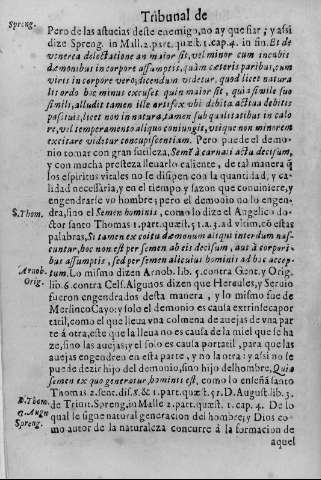 Tribunal de
Spreng. Pero de las astucias deste enemigo, no ay que fiar; y assi
dize Spreng. in Mall. 2. part. quæst. 1. cap. 4. in fin. Et de
venerea delectatione an maior sit, vel minor cum incubis
dæmonibus in corpore assumptis, quàm cæteris paribus, cum
viris in corpore vero, dicendum videtur, quod licet natura
lis ordo hoc minus excuset quin maior sit, quia simile suo
simili, alludit tamen ille artifex vbi debita actiua debitis
passiuis, licet non in natura, tamen sub qualitatibus in calo
re, vel temperamento aliquo coniungis, vtique non minorem
excitare videtur concupiscentiam. Pero puede el demo
nio tomar con gran sutileza, Semē à carnali actu decisum,
y con mucha presteza lleuarlo caliente, de tal manera q̃
los espiritus vitales no se disipen con la quantidad, y ca
lidad necessaria, y en el tiempo y sazon que conuiniere, y
engendrarse vn hombre; pero el demonio no lo engen-
S. Thom. dra, sino el Semen hominis, como lo dize el Angelico do
ctor santo Thomas 1. part. quæst. 51. a. 3. ad vltim. cō estas
palabras, Si tamen ex coitu dæmonum aliqui interdum nas-
cuntur, hoc non est per semen ab eis decisum, aut à corpori-
bus assumptis, sed per semen alicuius hominis ad hoc accep-
Arnob. tum. Lo mismo dizen Arnob. lib. 5. contra Gent. y Orig.
Orig. lib. 6. contra Cels. Algunos dizen que Hercules, y Seruio
fueron engendrados desta manera, y lo mismo fue de
Merlinco Cayo: y solo el demonio es causa extrinseca por
tatil, como el que lleua vna colmena de auejas de vna par
te á otra, este que la lleua no es causa de la miel que se ha
ze, sino las auejas; y el solo es causa portatil, para que las
auejas engendren en esta parte, y no la otra: y assi no se
puede dezir hijo del demonio, sino hijo del hombre, Quia
semen ex quo generatur, hominis est, como lo enseña santo
S. Thom. Thomas 2. sent. dis. 8. & 1. part. quæst. 51. D. August. lib. 3.
D. Augu. de Trinit. Spreng. in Malle. 2. part. quæst. 1. cap. 4. De lo
Spreng. qual se sigue natural generacion del hombre; y Dios co
mo autor de la naturaleza concurre á la formacion de
aquel